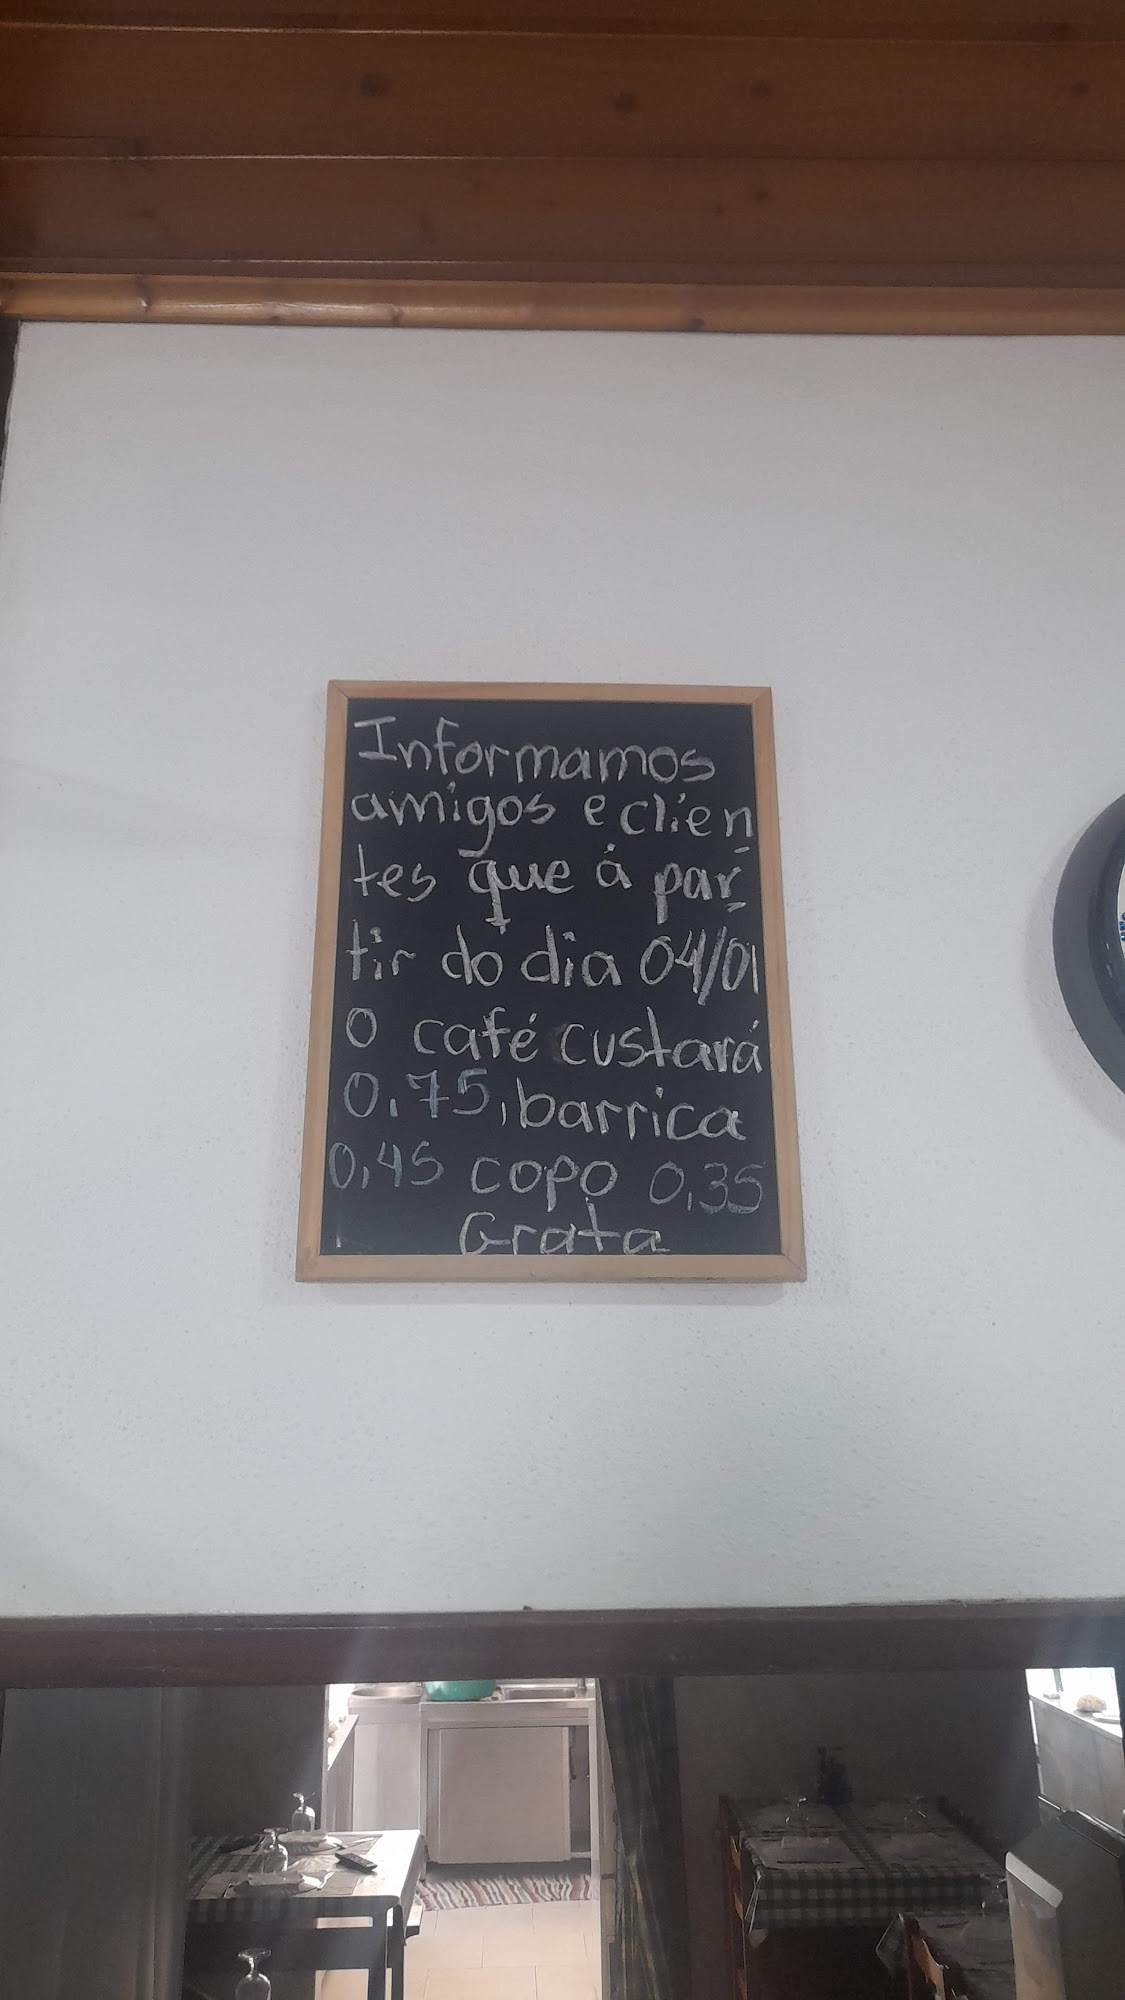 Informamos
amigos e clien
tes que á par
tir do dia 04/01
O café custará
0,75, barrica
0,45 copo 0,35
Grata